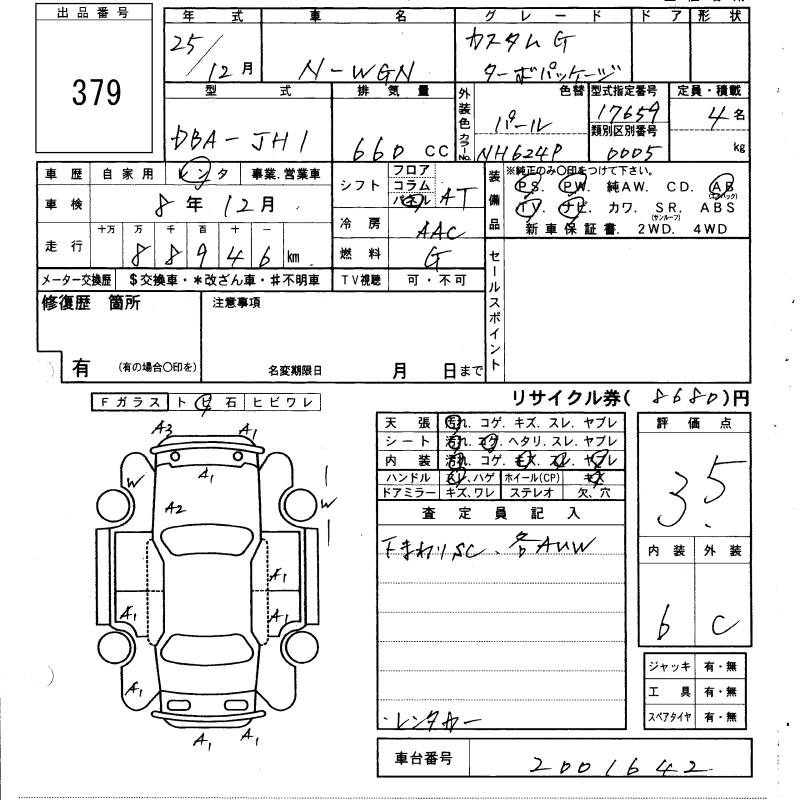 出品番号
379
年式 車名 グレード ドア 形状
25/12月 N-WGN カスタムG
ターボパッケージ
型式 排気量 外装色 カラーNo. 色替 型式指定番号 定員・積載
DBA-JH1 660 CC パール NH624P 17659 4名
類別区別番号
0005 kg
車歴 自家用 レンタ 事業.営業車
車検 8年12月
走行 十万 万 千 百 十 一
88946 km
メーター交換歴 $交換車・*改ざん車・#不明車
シフト フロア コラム パネル AT
冷房 AAC
燃料 G
TV視聴 可・不可
装備品 ※純正のみ〇印をつけて下さい。
PS. PW. 純AW. CD. AB(エアバック)
TV. ナビ. カワ. SR.(サンルーフ) ABS
新車保証書. 2WD. 4WD
セールスポイント
修復歴 箇所 注意事項
有 (有の場合〇印を) 名変期限日 月 日まで
リサイクル券( 8680 )円
Fガラス トビ石 ヒビワレ
天張 汚れ. コゲ. キズ. スレ. ヤブレ
シート 汚れ. コゲ. ヘタリ. スレ. ヤブレ
内装 汚れ. コゲ. キズ. スレ. ヤブレ
ハンドル スレ, ハゲ ホイール(CP) キズ
ドアミラー キズ, ワレ ステレオ 欠、穴
評価点
3.5
内装 外装
b C
査定員記入
下まわりSC.
・レンタカー
A3 A1
A1
W W
A2
A1
A1 A1
A1
A1 A1
ジャッキ 有・無
工具 有・無
スペアタイヤ 有・無
車台番号 2001642